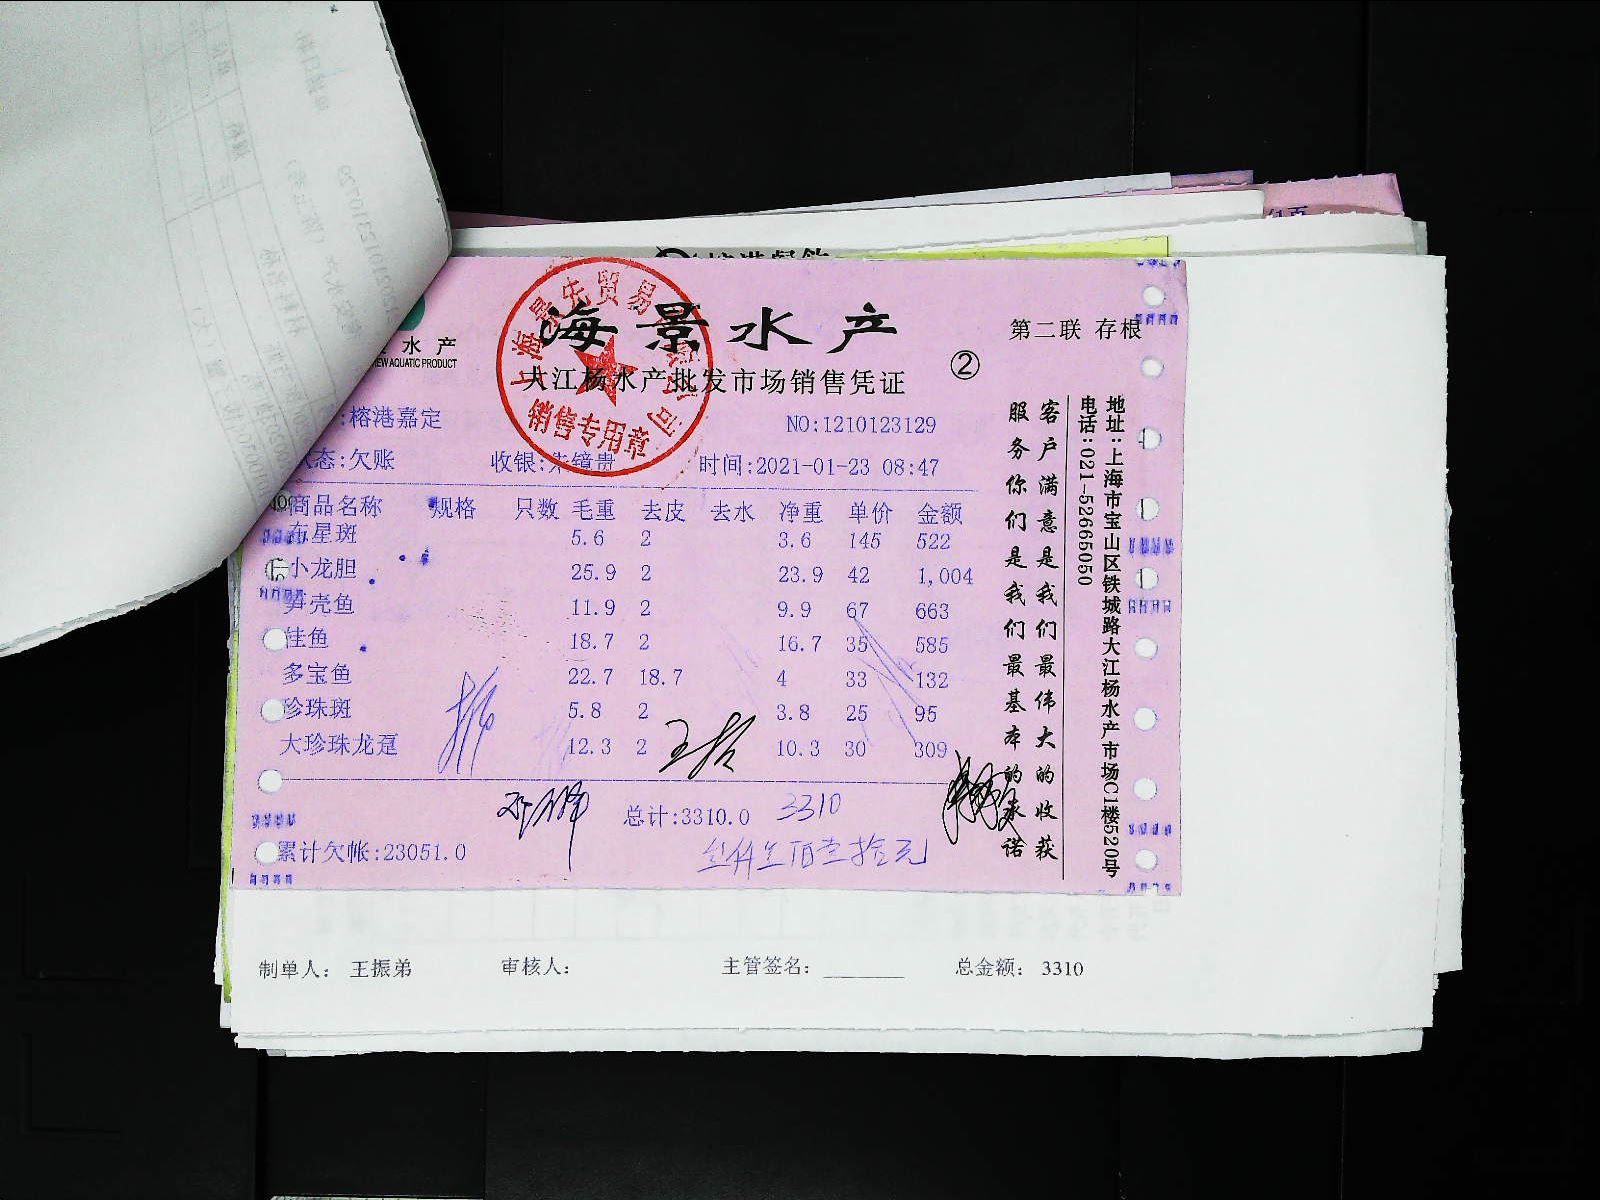 海景水产
第二联 存根
水产
NEW AQUATIC PRODUCT
大江杨水产批发市场销售凭证
②
销售专用章
:榕港嘉定
NO:1210123129
态:欠账 收银:朱镜贵 时间:2021-01-23 08:47
商品名称 规格 只数 毛重 去皮 去水 净重 单价 金额
东星斑 5.6 2 3.6 145 522
小龙胆 25.9 2 23.9 42 1,004
笋壳鱼 11.9 2 9.9 67 663
桂鱼 18.7 2 16.7 35 585
多宝鱼 22.7 18.7 4 33 132
珍珠斑 5.8 2 3.8 25 95
大珍珠龙趸 12.3 2 10.3 30 309
总计:3310.0 3310
累计欠帐:23051.0 叁仟叁佰壹拾元
客户满意是我们最伟大的收获
服务你们是我们最基本的承诺
地址:上海市宝山区铁城路大江杨水产市场C1楼520号
电话:021-52665050
制单人: 王振弟 审核人: 主管签名: ________ 总金额: 3310